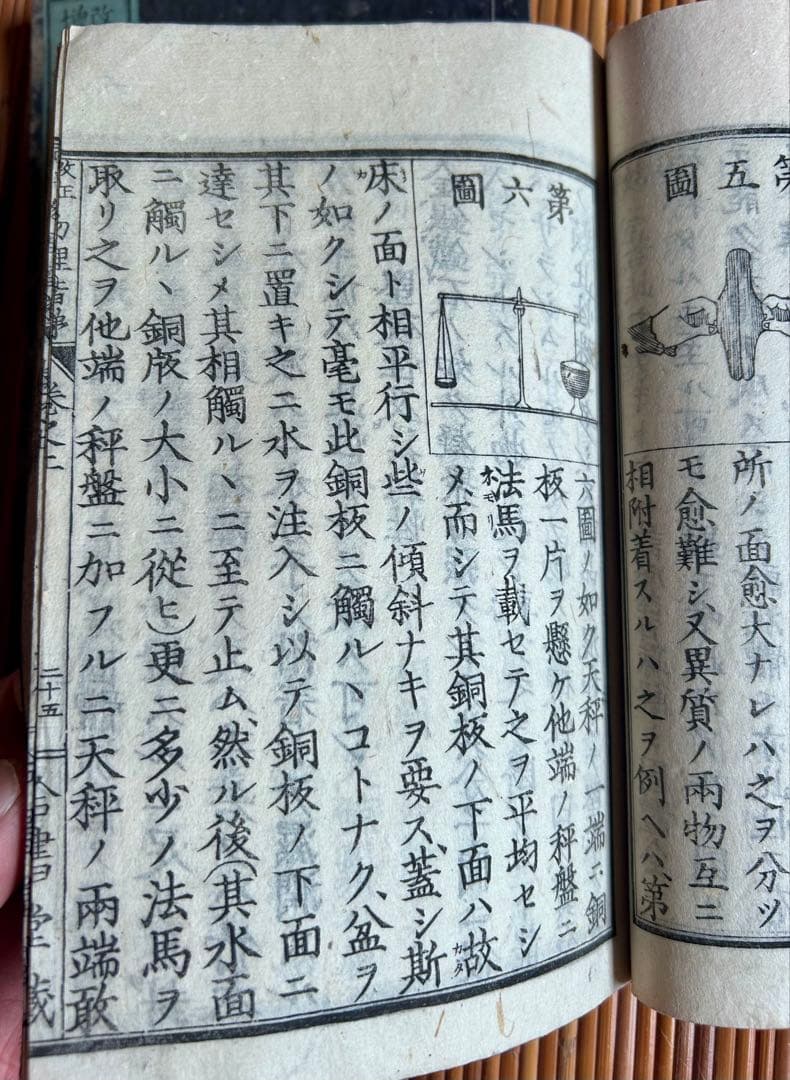 第五圖
所ノ面愈大ナレハ之ヲ分ツ
モ愈難シ、又異質ノ兩物互ニ
相附着スルハ之ヲ例ヘハ、第
第六圖
六圖ノ如ク天秤ノ一端ニ銅
板一片ヲ懸ケ他端ノ秤盤ニ
法馬ヲ載セテ之ヲ平均セシ
オモリ
メ、而シテ其銅板ノ下面ハ故
床ノ面ト相平行シ些ノ傾斜ナキヲ要ス、蓋シ斯
ノ如クシテ毫モ此銅板ニ觸ルヽコトナク、盆ヲ
其下ニ置キ之ニ水ヲ注入シ以テ銅板ノ下面ニ
達セシメ其相觸ルヽニ至テ止ム、然ル後(其水面
ニ觸ルヽ銅版ノ大小ニ從ヒ)更ニ多少ノ法馬ヲ
取リ之ヲ他端ノ秤盤ニ加フルニ天秤ノ兩端敢
二十五